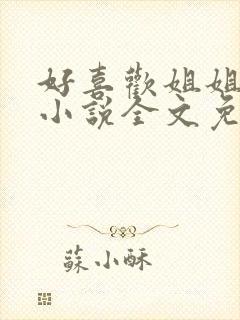 好喜歡姐姐
小說全文免
蘇小酥